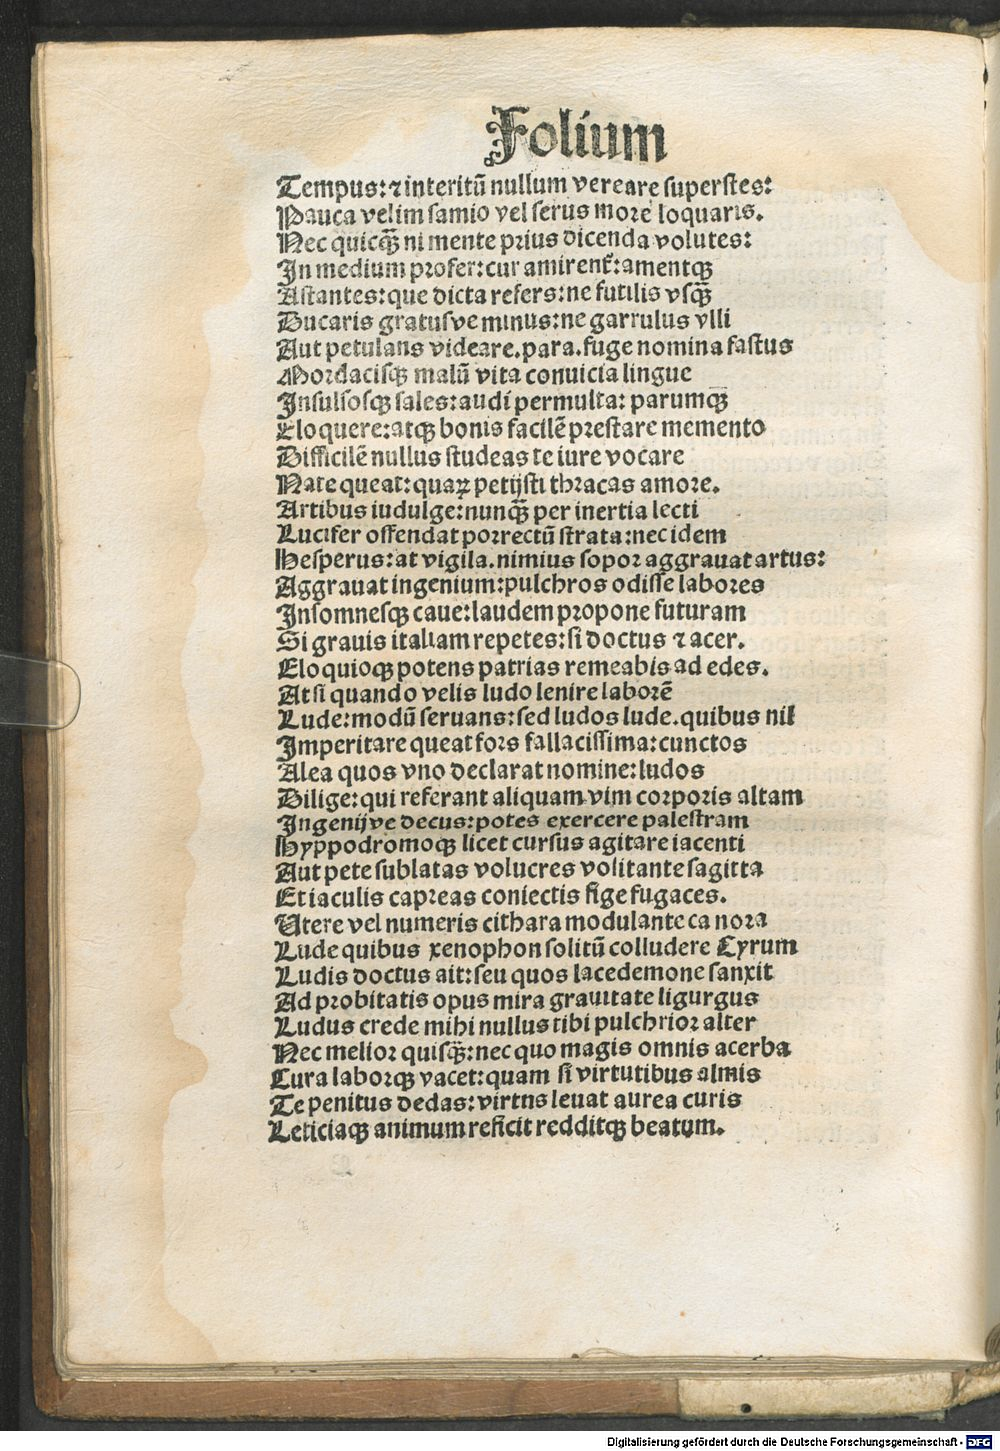 Folium
Tempus: ⁊ interitū nullum vereare superstes:
Pauca velim samio vel serus more loquaris.
Nec quicq̄ꝫ ni mente prius dicenda volutes:
In medium profer: cur amirent᷑: amentqꝫ
Astantes: que dicta refers: ne futilis vsq̄ꝫ
Ducaris gratusve minus: ne garrulus vlli
Aut petulans videare. para. fuge nomina fastus
Mordacisqꝫ malū vita conuicia lingue
Insulsosqꝫ sales: audi permulta: parumqꝫ
Eloquere: atqꝫ bonis facilē prestare memento
Difficilē nullus studeas te iure vocare
Nate queat: quaꝝ petijsti thracas amore.
Artibus iudulge: nunq̄ꝫ per inertia lecti
Lucifer offendat porrectū strata: nec idem
Hesperus: at vigila. nimius sopor aggrauat artus:
Aggrauat ingenium: pulchros odisse labores
Insomnesqꝫ caue: laudem propone futuram
Si grauis italiam repetes: si doctus ⁊ acer.
Eloquioqꝫ potens patrias remeabis ad edes.
At si quando velis ludo lenire laborē
Lude: modū seruans: sed ludos lude. quibus nil
Imperitare queat fors fallacissima: cunctos
Alea quos vno declarat nomine: ludos
Dilige: qui referant aliquam vim corporis altam
Ingenijve decus: potes exercere palestram
Hyppodromoqꝫ licet cursus agitare iacenti
Aut pete sublatas volucres volitante sagitta
Et iaculis capreas coniectis fige fugaces.
Utere vel numeris cithara modulante ca nora
Lude quibus xenophon solitū colludere Cyrum
Ludis doctus ait: seu quos lacedemone sanxit
Ad probitatis opus mira grauitate ligurgus
Ludus crede mihi nullus tibi pulchrior alter
Nec melior quisq̄ꝫ: nec quo magis omnis acerba
Cura laborqꝫ vacet: quam si virtutibus almis
Te penitus dedas: virtns leuat aurea curis
Leticiaqꝫ animum reficit redditqꝫ beatum.
Digitalisierung gefördert durch die Deutsche Forschungsgemeinschaft - DFG